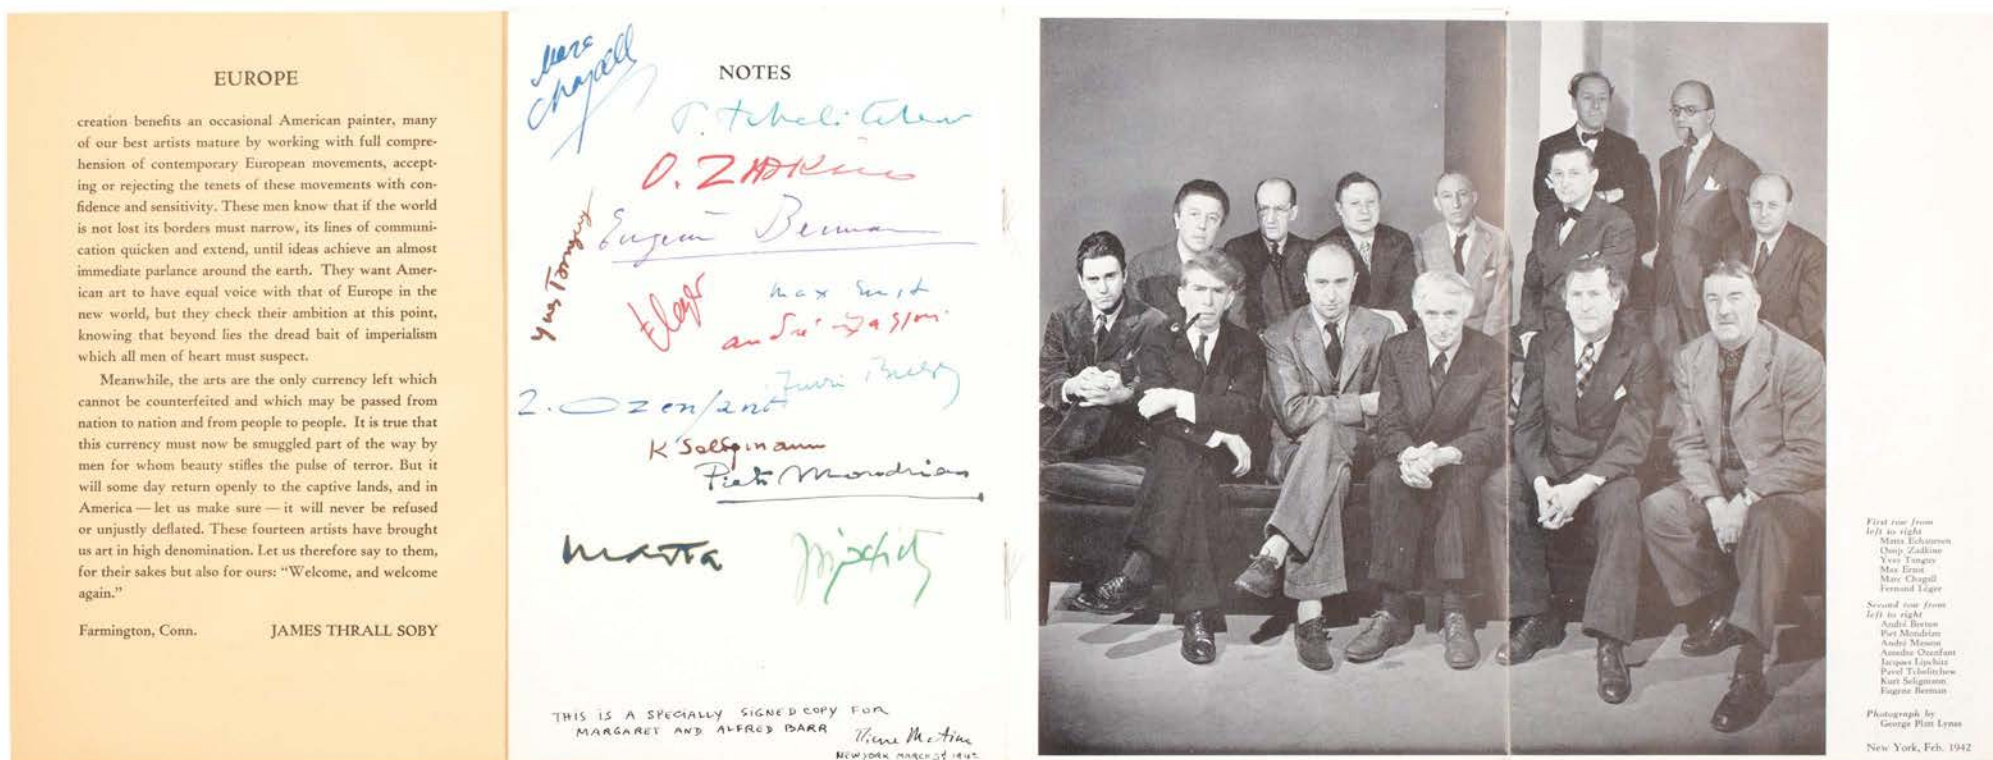 EUROPE
creation benefits an occasional American painter, many
of our best artists mature by working with full compre-
hension of contemporary European movements, accept-
ing or rejecting the tenets of these movements with con-
fidence and sensitivity. These men know that if the world
is not lost its borders must narrow, its lines of communi-
cation quicken and extend, until ideas achieve an almost
immediate parlance around the earth. They want Amer-
ican art to have equal voice with that of Europe in the
new world, but they check their ambition at this point,
knowing that beyond lies the dread bait of imperialism
which all men of heart must suspect.
Meanwhile, the arts are the only currency left which
cannot be counterfeited and which may be passed from
nation to nation and from people to people. It is true that
this currency must now be smuggled part of the way by
men for whom beauty stifles the pulse of terror. But it
will some day return openly to the captive lands, and in
America — let us make sure — it will never be refused
or unjustly deflated. These fourteen artists have brought
us art in high denomination. Let us therefore say to them,
for their sakes but also for ours: “Welcome, and welcome
again.”
Farmington, Conn. JAMES THRALL SOBY
NOTES
Marc
Chagall
P. Tchelitchew
O. ZADKine
Eugene Berman
Yves Tanguy
FLeger
max Ernst
andré Masson
Ozenfant
K Seligmann
Piet Mondrian
matta
Lipchitz
THIS IS A SPECIALLY SIGNED COPY FOR
MARGARET AND ALFRED BARR
NEW YORK MARCH
First row from
left to right
Matta Echaurren
Ossip Zadkine
Yves Tanguy
Max Ernst
Marc Chagall
Fernand Léger
Second row from
left to right
André Breton
Piet Mondrian
André Masson
Amedee Ozenfant
Jacques Lipchitz
Pavel Tchelitchew
Kurt Seligmann
Eugene Berman
Photograph by
George Platt Lynes
New York, Feb. 1942